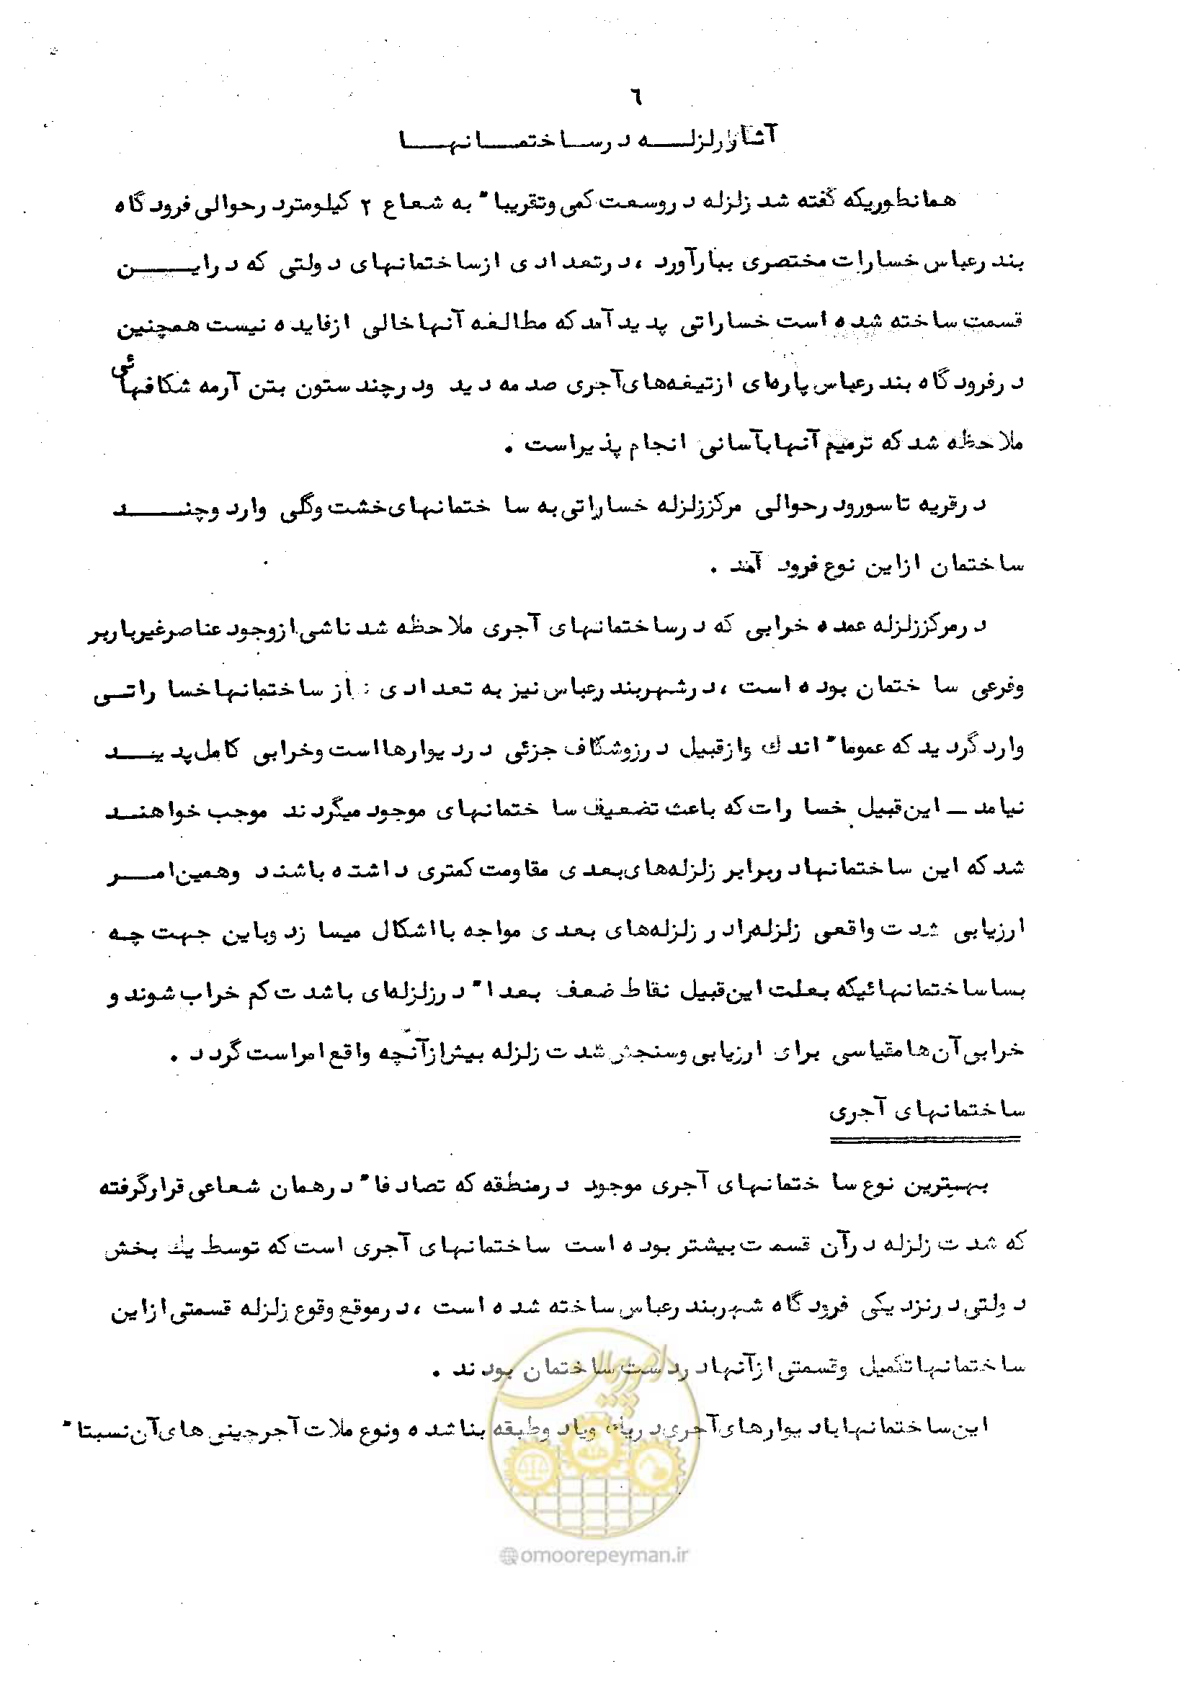 ٦
آثار زلزله در ساختمانها
همانطوریکه گفته شد زلزله در وسعت کمی وتقریبا" به شعاع ۲ کیلومتر در حوالی فرودگاه
بندرعباس خسارات مختصری ببارآورد ، در تعدادی ازساختمانهای دولتی که در این
قسمت ساخته شده است خساراتی پدیدآمد که مطالعه آنها خالی ازفایده نیست همچنین
در فرودگاه بندرعباس پاره‌ای از تیغه‌های آجری صدمه دید ودر چند ستون بتن آرمه شکافهائی
ملاحظه شد که ترمیم آنها بآسانی انجام پذیراست .
در قریه تاسورود رحوالی مرکززلزله خساراتی به ساختمانهای خشت وگلی وارد وچند
ساختمان ازاین نوع فرود آمد .
در مرکززلزله عمده خرابی که در ساختمانهای آجری ملاحظه شد ناشی ازوجود عناصرغیرباربر
وفرعی ساختمان بوده است ، در شهربندرعباس نیز به تعدادی از ساختمانها خساراتی
وارد گردید که عموما" اندك وازقبیل درزوشکاف جزئی در دیوارهااست وخرابی کامل پدید
نیامد ــ این قبیل خسارات که باعث تضعیف ساختمانهای موجود میگردند موجب خواهند
شد که این ساختمانها در برابر زلزله‌های بعدی مقاومت کمتری داشته باشند وهمین امر
ارزیابی شدت واقعی زلزله را در زلزله‌های بعدی مواجه بااشکال میسازد وباین جهت چه
بسا ساختمانهائیکه بعلت این قبیل نقاط ضعف بعدا" در زلزله‌ای باشدت کم خراب شوند و
خرابی آن‌ها مقیاسی برای ارزیابی وسنجش شدت زلزله بیش ازآنچه واقع امراست گردد .
ساختمانهای آجری
بهترین نوع ساختمانهای آجری موجود در منطقه که تصادفا" در همان شعاعی قرارگرفته
که شدت زلزله در آن قسمت بیشتر بوده است ساختمانهای آجری است که توسط یك بخش
دولتی در نزدیکی فرودگاه شهربندرعباس ساخته شده است ، در موقع وقوع زلزله قسمتی ازاین
ساختمانها تکمیل وقسمتی ازآنها در دست ساختمان بودند .
این ساختمانها با دیوارهای آجری در یك ویا دوطبقه بنا شده ونوع ملات آجرچینی های آن نسبتا"
امور پیمان
@omoorepeyman.ir